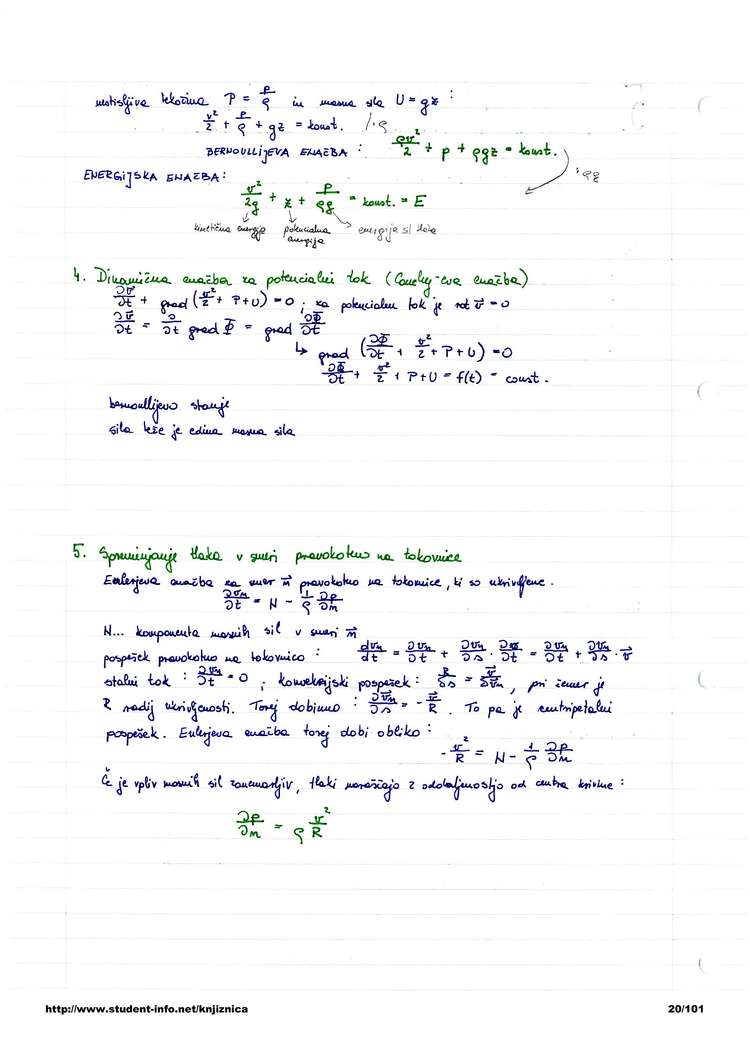 nestisljiva tekočina P = p/ρ in masna sila U = gz :
v²/2 + p/ρ + gz = konst. /·ρ
BERNOULLIJEVA ENAČBA : ρv²/2 + p + ρgz = konst.
: ρg
ENERGIJSKA ENAČBA :
v²/2g + z + p/ρg = konst. = E
kinetična energija potencialna energija energija sil tlaka
4. Dinamična enačba za potencialni tok (Cauchy-eva enačba)
∂v⃗/∂t + grad (v²/2 + P + U) = 0 ; za potencialni tok je rot v⃗ = 0
∂v⃗/∂t = ∂/∂t grad Φ = grad ∂Φ/∂t
↳ grad (∂Φ/∂t + v²/2 + P + U) = 0
∂Φ/∂t + v²/2 + P + U = f(t) = const.
bernoullijevo stanje
sila teže je edina masna sila
5. Spreminjanje tlaka v smeri pravokotno na tokovnice
Eulerjeva enačba za smer n⃗ pravokotno na tokovnice, ki so ukrivljene.
∂vₙ/∂t = N - 1/ρ ∂p/∂n
N... komponenta masnih sil v smeri n⃗
pospešek pravokotno na tokovnico : dvₙ/dt = ∂vₙ/∂t + ∂vₙ/∂s · ∂s/∂t = ∂vₙ/∂t + ∂vₙ/∂s · v⃗
stalni tok : ∂vₙ/∂t = 0 ; konvekcijski pospešek : R/δs = v/δvₙ , pri čemer je
R radij ukrivljenosti. Torej dobimo : ∂vₙ/∂s = - v/R . To pa je centripetalni
pospešek. Eulerjeva enačba torej dobi obliko :
- v²/R = N - 1/ρ ∂p/∂n
Če je vpliv masnih sil zanemarljiv, tlaki naraščajo z oddaljenostjo od centra krivine :
∂p/∂n = ρ v²/R
http://www.student-info.net/knjiznica 20/101